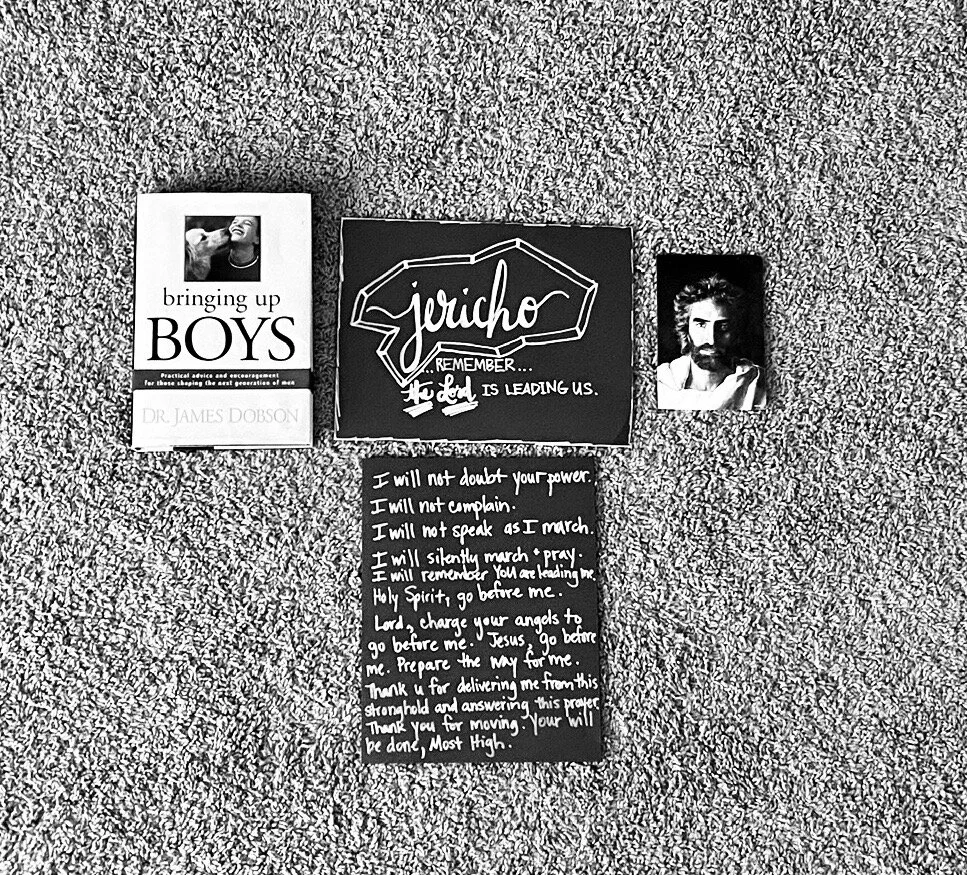 bringing up
BOYS
Practical advice and encouragement
for those shaping the next generation of men
DR. JAMES DOBSON
jericho
...REMEMBER...
the Lord IS LEADING US.
I will not doubt your power.
I will not complain.
I will not speak as I march.
I will silently march + pray.
I will remember YOU are leading me.
Holy Spirit, go before me.
Lord, charge your angels to
go before me. Jesus, go before
me. Prepare the way for me.
Thank u for delivering me from this
stronghold and answering this prayer.
Thank you for moving. Your will
be done, Most High.